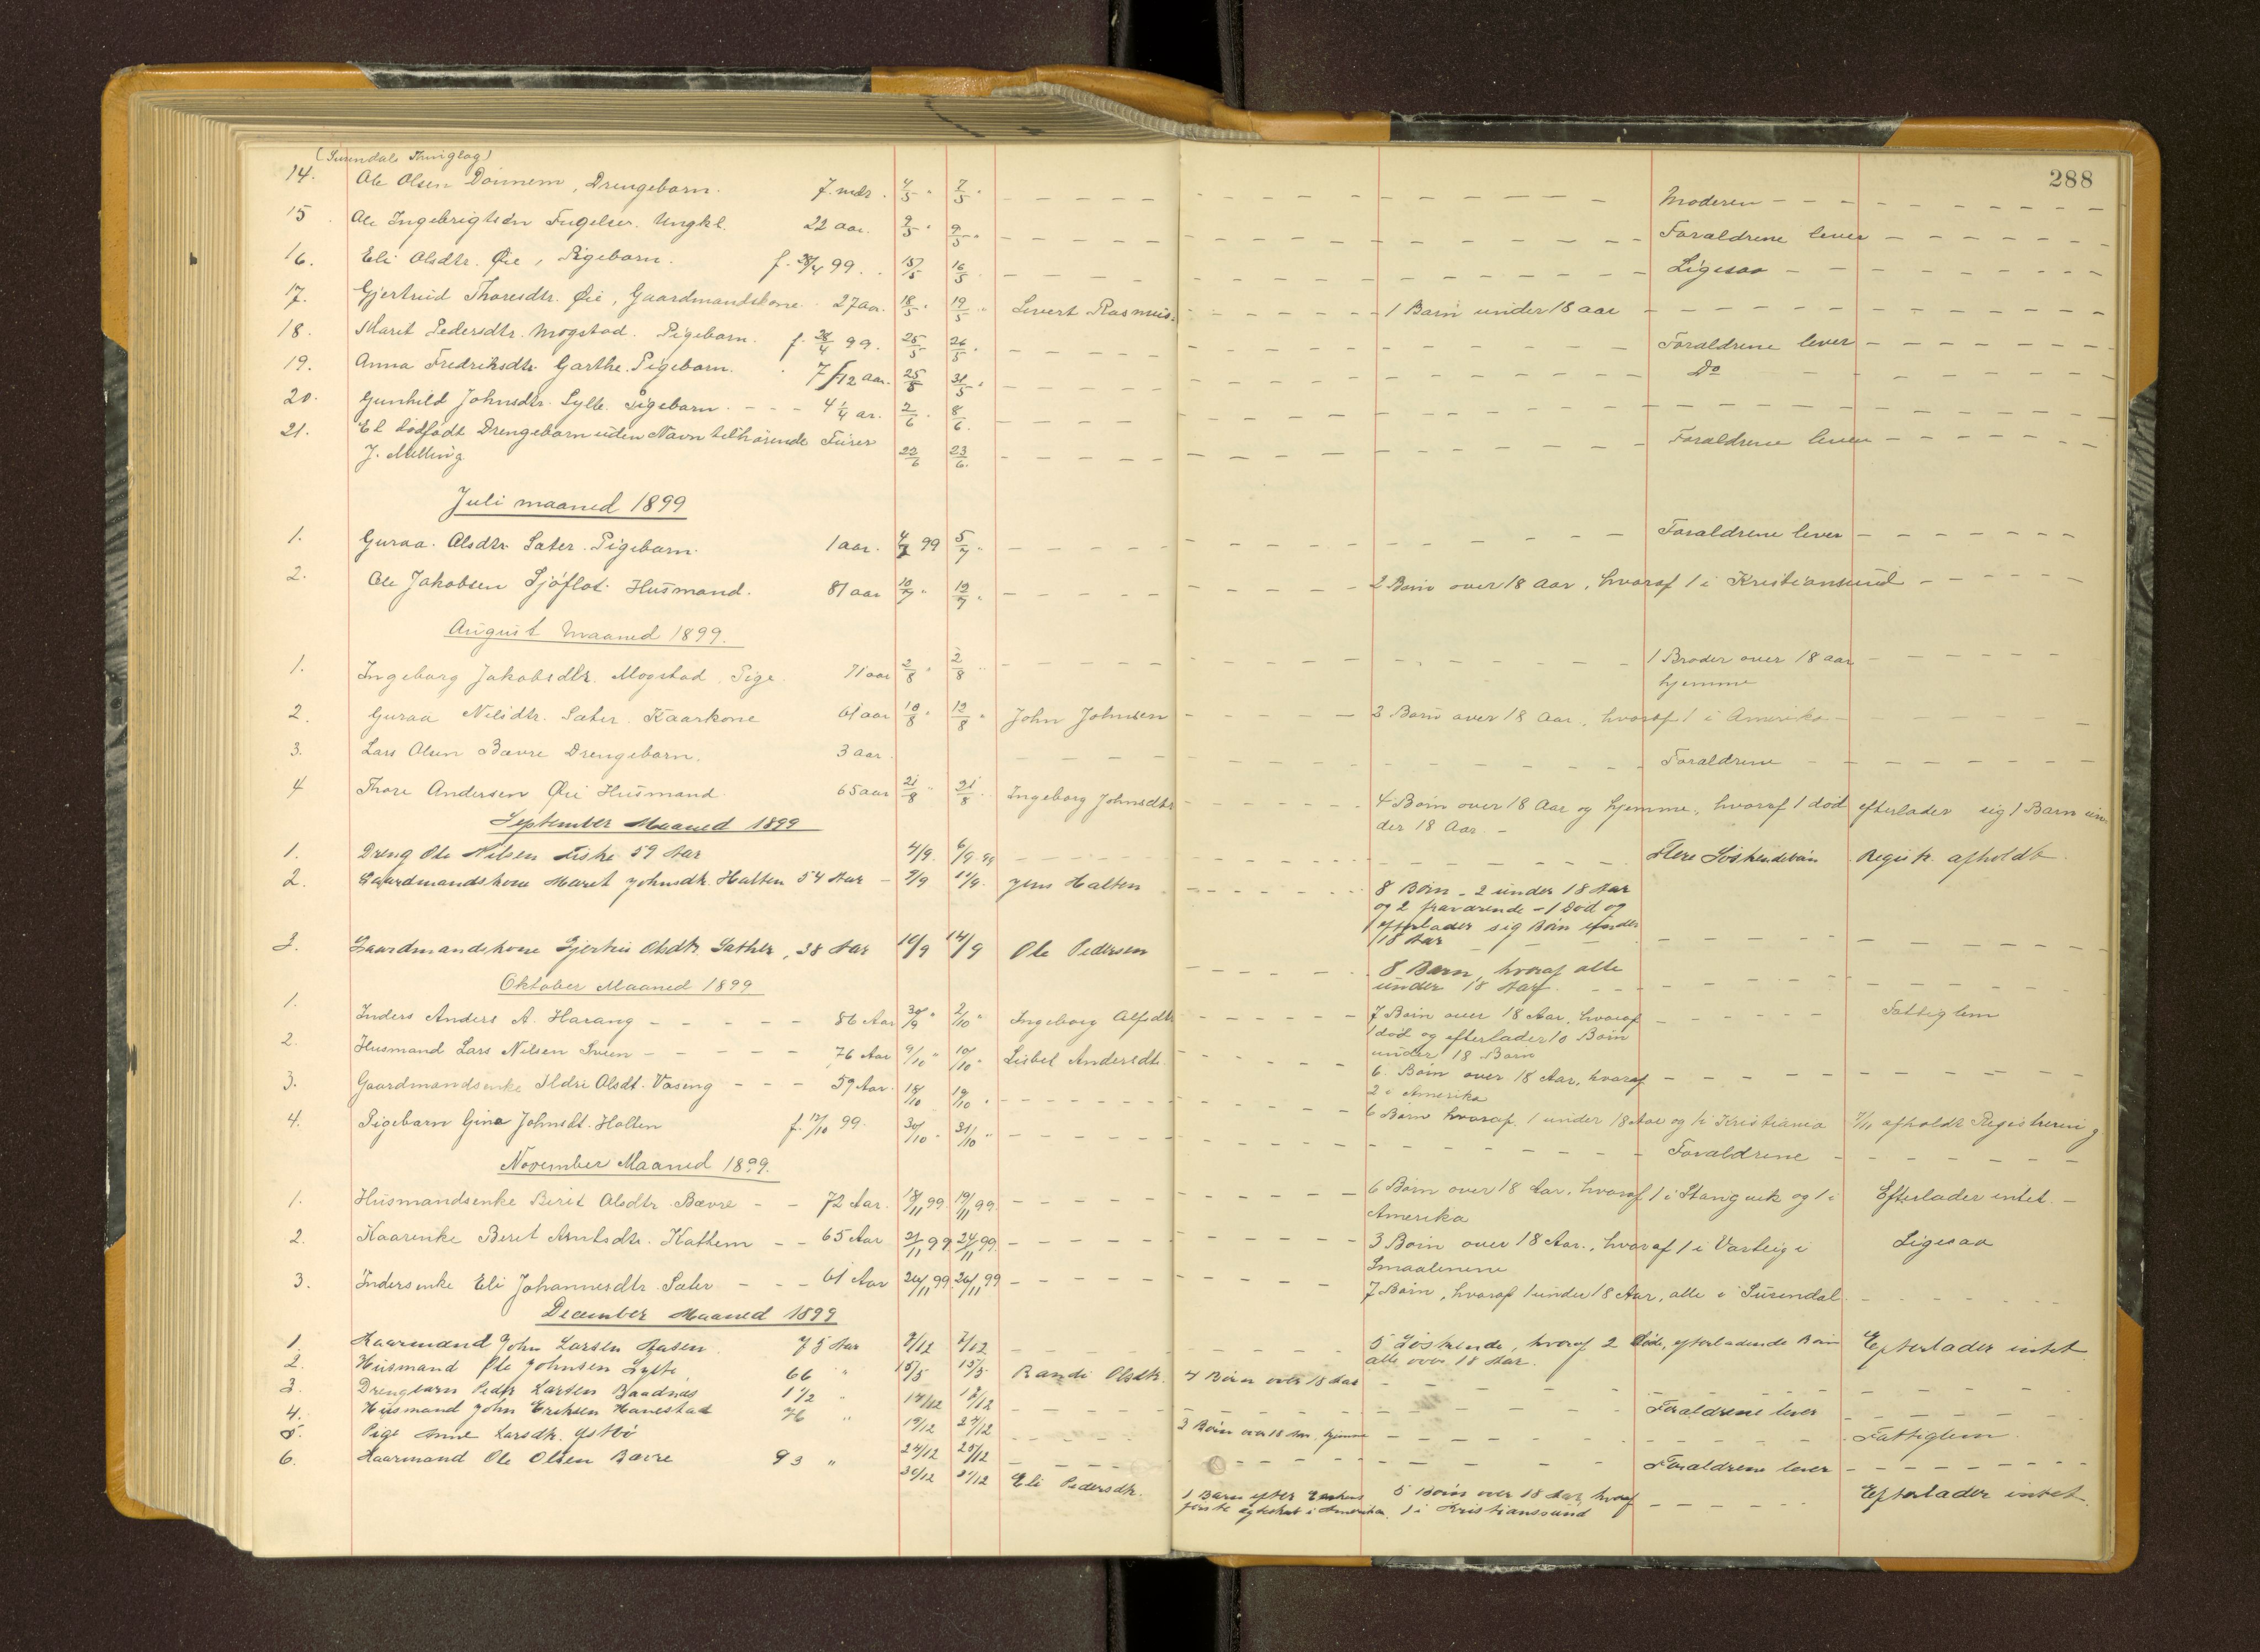 288
(Surendals Thinglag)
14. Ole Olsen Dönnem, Drengebarn. 7 mdr. 4/5 " 7/5 " Moderen
15. Ole Ingebrigtsen Fugelsø. Ungkl. 22 aar. 9/5 " 9/5 " Forældrene lever
16. Eli Olsdtr. Øie, Pigebarn. f. 28/4 99. 15/5 16/5 Ligesaa
17. Gjertrud Thoresdtr. Øie, Gaardmandskone 27 aar. 18/5 " 19/5 " Sivert Rasmus. 1 Barn under 18 aar
18. Marit Pedersdtr. Mogstad. Pigebarn. f. 28/4 99. 25/5 26/5 " Forældrene lever
19. Anna Fredriksdtr. Garthe. Pigebarn. 7/12 aar. 25/5 31/5 " Do
20. Gunhild Johnsdtr. Sylte. Pigebarn. 4 1/4 ar. 2/6 " 8/6.
21. Et dødfødt Drengebarn uden Navn tilhørende Furer
J. Melling 22/6 23/6. Forældrene lever
Juli maaned 1899
1. Guraa Olsdtr. Sæter. Pigebarn. 1 aar. 4/7 99 5/7 " Forældrene lever
2. Ole Jakobsen Sjøflot. Husmand. 81 aar 10/7 " 12/7 " 2 Børn over 18 Aar, hvoraf 1 i Kristiansund
August Maaned 1899.
1. Ingeborg Jakobsdtr. Mogstad. Pige. 71 aar 2/8 " 2/8 " 1 Broder over 18 aar
hjemme
2. Guraa Nilsdtr. Sæter. Kaarkone 61 aar 10/8 " 12/8 " John Johnsen 3 Børn over 18 Aar, hvoraf 1 i Amerika
3. Lars Olsen Bævre Drengebarn. 3 aar Forældrene
4 Thore Andersen Øie Husmand 65 aar 21/8 " 21/8 " Ingeborg Johnsdtr 4 Børn over 18 Aar og hjemme, hvoraf 1 död efterlader sig 1 Barn un-
der 18 Aar
September Maaned 1899
1. Dreng Ole Nilsen Fiske 59 Aar 4/9. 6/9 99 Flere Söskendebörn Regist. afholdt
2. Gaardmandskone Marit Johnsdtr. Halten 54 Aar 9/9 11/9. Jens Halten 8 Börn - 2 under 18 Aar
og 2 fraværende - 1 Död og
efterlader sig Börn under
18 Aar
3. Gaardmandskone Gjertru Olsdtr. Sæther, 38 Aar 10/9 14/9 Ole Pedersen 8 Barn, hvoraf alle
under 18 Aar
Oktober Maaned 1899
1. Inders Anders A. Harang 86 Aar 30/9 " 2/10 " Ingeborg Alfsdtr 7 Børn over 18 Aar, hvoraf Fattiglem
1 død og efterlader 10 Børn
under 18 Barn
2. Husmand Lars Nilsen Svien 76 Aar 9/10 " 10/10 " Lisbet Andersdtr. 6 Børn over 18 Aar, hvoraf
2 i Amerika
3. Gaardmandsenke Ildri Olsdt. Vaseng 59 Aar. 18/10 19/10 " 6 Børn hvoraf 1 under 18 Aar og 1 i Kristiania 7/11 afholdt Registrering
4. Pigebarn Gina Johnsdt. Holten f. 12/10 99. 30/10 " 31/10 " Forældrene
November Maaned 1899.
1. Husmandsenke Berit Olsdtr. Bævre 72 Aar. 18/11 99. 19/11 99. 6 Børn over 18 Aar, hvoraf 1 i Stangvik og 1 i Efterlader intet.
Amerika
2. Kaarenke Beret Arntsdtr. Kattem 65 Aar 21/11 99 24/11 99. 3 Børn over 18 Aar., hvoraf 1 i Varteig i Ligesaa
Smaalenene
3. Indersenke Eli Johannesdtr. Sæter 61 Aar 24/11 99. 26/11 99 7 Børn, hvoraf 1 under 18 Aar, alle i Surendal
December Maaned 1899
1. Kaarmand John Larsen Aasen 75 Aar 2/12 7/12 5 Söskende, hvoraf 2 Døde, efterladende Børn Efterlader intet
alle over 18 Aar.
2. Husmand Ole Johnsen Sylte 66 " 15/5 15/5 Randi Olsdtr. 4 Börn over 18 Aar
3. Drengbarn Peder Larsen Baadnæs 1 1/2 " 14/12 17/12 Forældrene lever
4. Husmand John Eriksen Hanestad 76 " 19/12 27/12 3 Börn over 18 Aar. hjemme Fattiglem.
5. Pige Anne Larsdtr. Ystbö 24/12 25/12 Forældrene lever
6. Kaarmand Ole Olsen Bævre 93 " 30/12 31/12 Eli Pedersdtr. 1 Barn efter Enkens 5 Börn over 18 Aar, hvoraf Efterlader intet
første egteskab i Amerika. 1 i Kristianssund